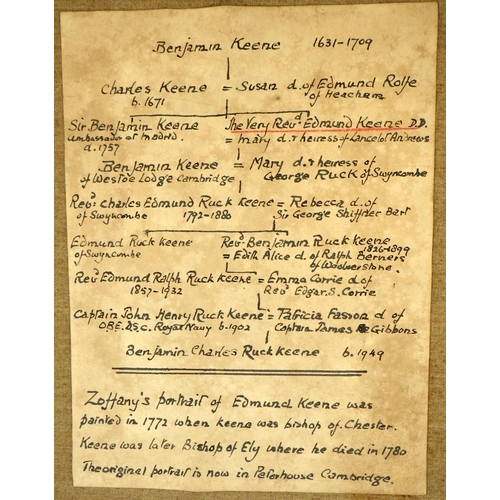 Benjamin Keene 1631-1709
Charles Keene = Susan d. of Edmund Rolfe
b. 1671 of Heacham
Sir Benjamin Keene The Very Revd Edmund Keene D.D.
Ambassador at Madrid = Mary d. & heiress of Lancelot Andrews
d. 1757
Benjamin Keene = Mary d. & heiress of
of Westoe Lodge Cambridge George Ruck of Swyncombe
Revd. Charles Edmund Ruck Keene = Rebecca d. of
of Swyncombe 1792-1880 Sir George Shiffner Bart
Edmund Ruck Keene Revd. Benjamin Ruck Keene
of Swyncombe = Edith Alice d. of Ralph Berners 1826-1899
of Woolverstone.
Revd Edmund Ralph Ruck Keene = Emma Corrie d. of
1857-1932 Revd Edgar. S. Corrie
Captain John Henry Ruck Keene = Patricia Fasson d. of
OBE. DSC. Royal Navy b. 1902 Captain James Gibbons
Benjamin Charles Ruck Keene b. 1949
Zoffany's portrait of Edmund Keene was
painted in 1772 when Keene was bishop of Chester.
Keene was later Bishop of Ely where he died in 1780
The original portrait is now in Peterhouse Cambridge.